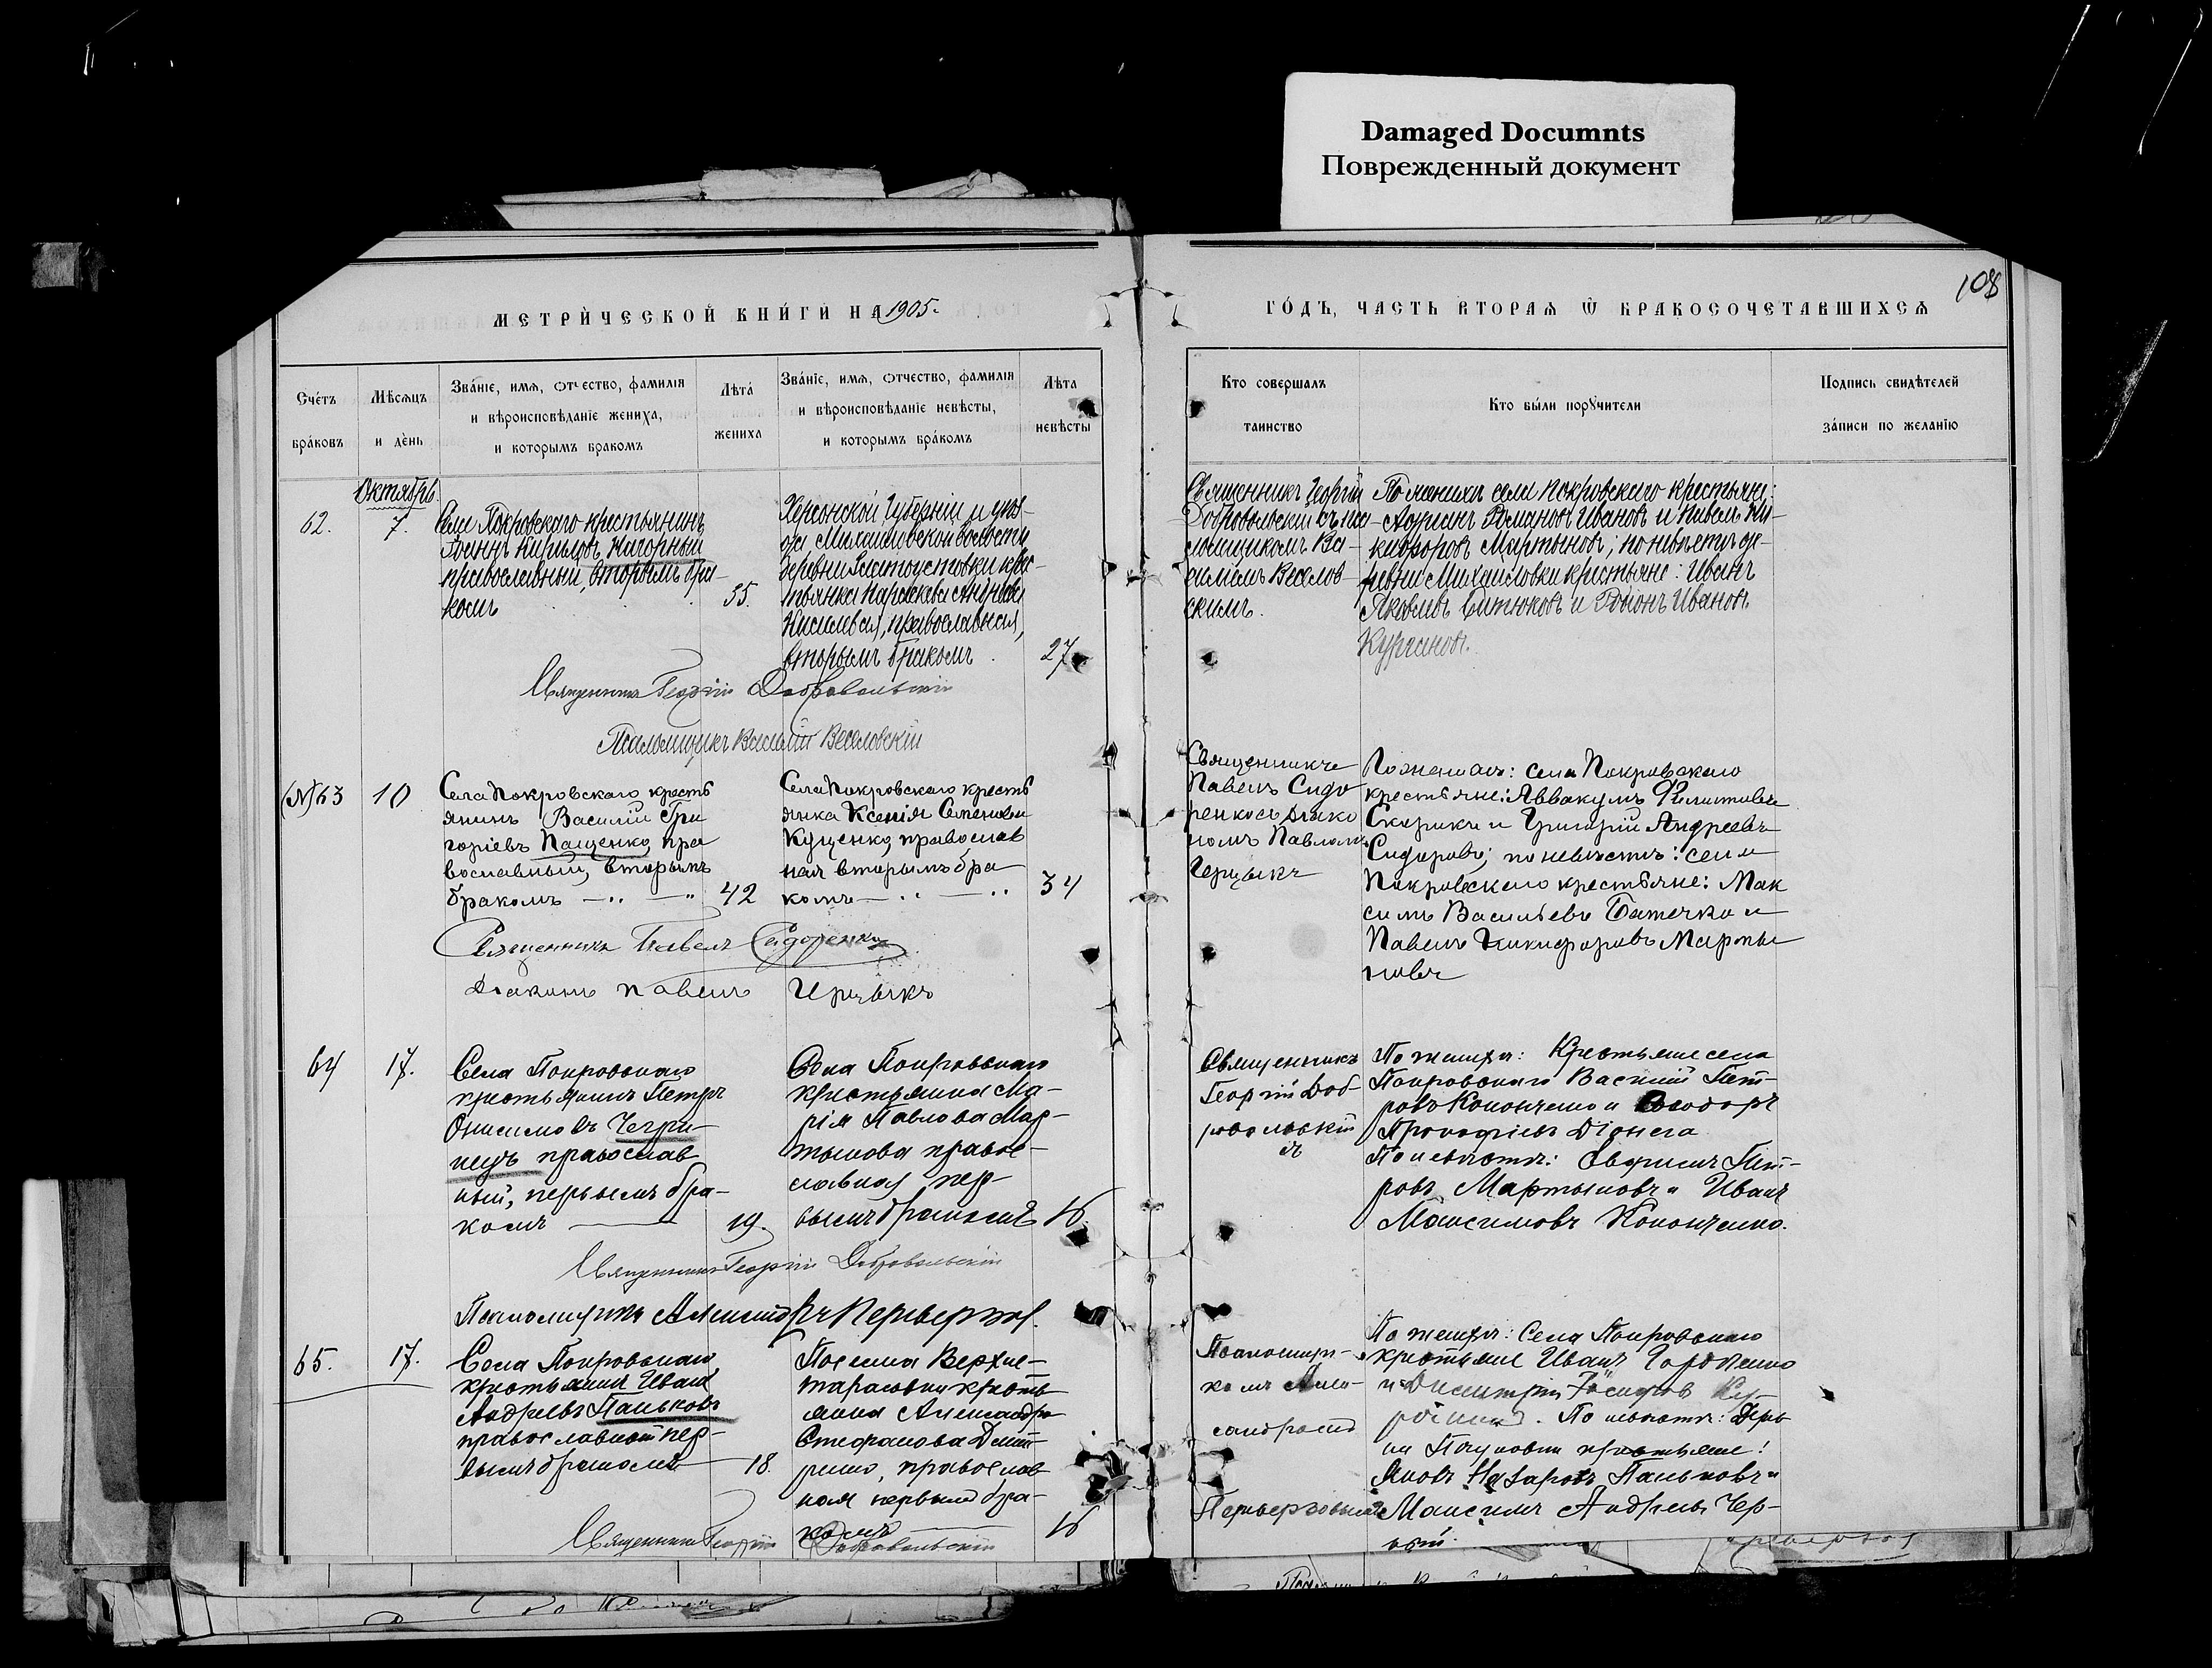 Damaged Documnts
Поврежденный документ
108
МЕТРИЧЕСКОЙ КНИГИ НА 1905.
ГОДЪ, ЧАСТЬ ВТОРАЯ Ѿ БРАКОСОЧЕТАВШИХСЯ
Счетъ браковъ
Мѣсяцъ и день
Званіе, имя, отчество, фамилія
и вѣроисповѣданіе жениха,
и которымъ бракомъ
Лѣта
жениха
Званіе, имя, отчество, фамилія
и вѣроисповѣданіе невѣсты,
и которымъ бракомъ
Лѣта
невѣсты
Кто совершалъ
таинство
Кто были поручители
Подпись свидѣтелей
записи по желанію
Октябрь
62.
7.
Села Покровскаго крестьянинъ
Іоаннъ Кириловъ Нагорный
православный, вторымъ бра-
комъ
35.
Херсонской Губерніи и уѣз-
да Михайловской волости
деревни Златоустовки крес-
тьянка Параскева
православная,
вторымъ бракомъ
27
Священникъ Георгій
Добровольскій съ пса-
ломщикомъ Ва-
силіемъ Веселов-
скимъ.
По женихѣ села Покровскаго крестьяне:
Адріанъ Романовъ Ивановъ и Павелъ Ни-
кифоровъ Мартыновъ; по невѣстѣ де-
ревни Михайловки крестьяне: Иванъ
Яковлевъ Ситюковъ и Родіонъ Ивановъ
Кургановъ.
Священникъ Георгій Добровольскій
Псаломщикъ Василій Веселовскій
№63
10
Села Покровскаго кресть
янинъ Василій Гри
горіевъ Пащенко, пра
вославный, вторымъ
бракомъ
42
Села Покровскаго кресть
янка Ксенія Семенова
Куценко, православ
ная вторымъ бра
комъ
34
Священникъ
Павелъ Сидо
ренко съ діако
номъ Павломъ
Герцыкъ
По женихѣ: села Покровскаго
крестьяне: Аввакумъ Филиповъ
Скорикъ и Григорій Андреевъ
Сидоровъ; по невѣстѣ: села
Покровскаго крестьяне: Мак
симъ Васильевъ Батечко и
Павелъ Никифоровъ Марты
новъ
Священникъ Павелъ Сидоренко
Діаконъ Павелъ Герцыкъ
64
17.
Села Покровскаго
крестьянинъ Петръ
Онисимовъ Чегри-
нецъ православ
ный, первымъ бра-
комъ
19.
Села Покровскаго
крестьянка Ма-
рія Павлова Мар-
тынова правос-
лавная, пер-
вымъ бракомъ
16.
Священникъ
Георгій Доб-
ровольскій
съ
По женихѣ: Крестьяне села
Покровскаго Василій Пет-
ровъ Кононченко и Ѳеодоръ
Прокофіевъ Діонега
По невѣстѣ: Пет-
ровъ Мартыновъ и Иванъ
Максимовъ Кононченко.
Священникъ Георгій Добровольскій
Псаломщикъ Александръ
65.
17.
Села Покровскаго
крестьянинъ Иванъ
Андреевъ Паньковъ
православный пер-
вымъ бракомъ
18.
Поселка Верхне-
тарасовки кресть
янка Александра
Стефанова
православ
ная первымъ бра-
комъ
16
Псаломщи-
комъ Алек-
сандромъ
По женихѣ: Села Покровскаго
крестьяне Иванъ
и Димитрій
По невѣстѣ: Дерев
ни крестьяне:
Яковъ Назаровъ Паньковъ и
Максимъ Андреевъ Чер-
ный.
Священникъ Георгій Добровольскій